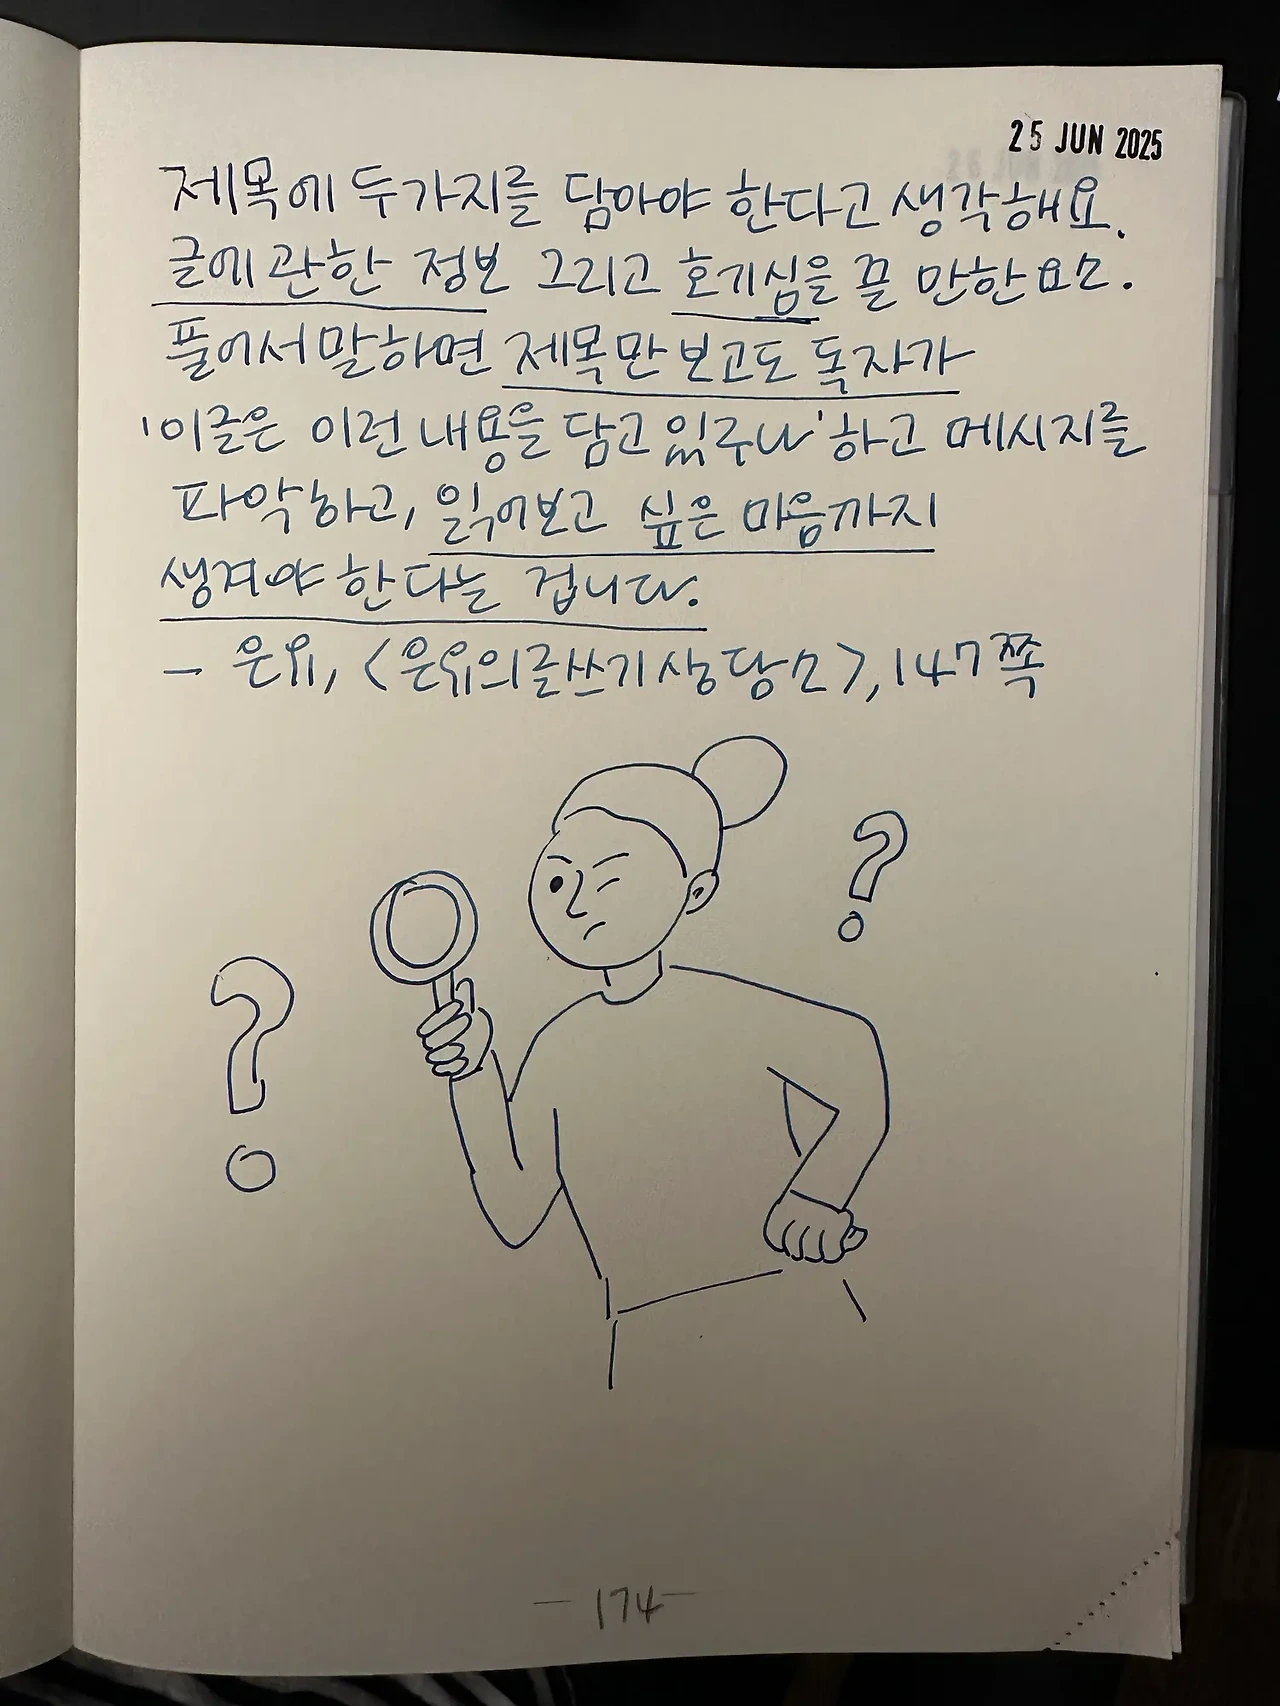 25 JUN 2025
제목에 두가지를 담아야 한다고 생각해요.
글에 관한 정보 그리고 호기심을 끌 만한 요소.
풀어서 말하면 제목만 보고도 독자가
'이글은 이런 내용을 담고 있구나' 하고 메시지를
파악하고, 읽어보고 싶은 마음까지
생겨야 한다는 겁니다.
- 은유, <은유의 글쓰기 상담소>, 147쪽
?
?
- 174 -